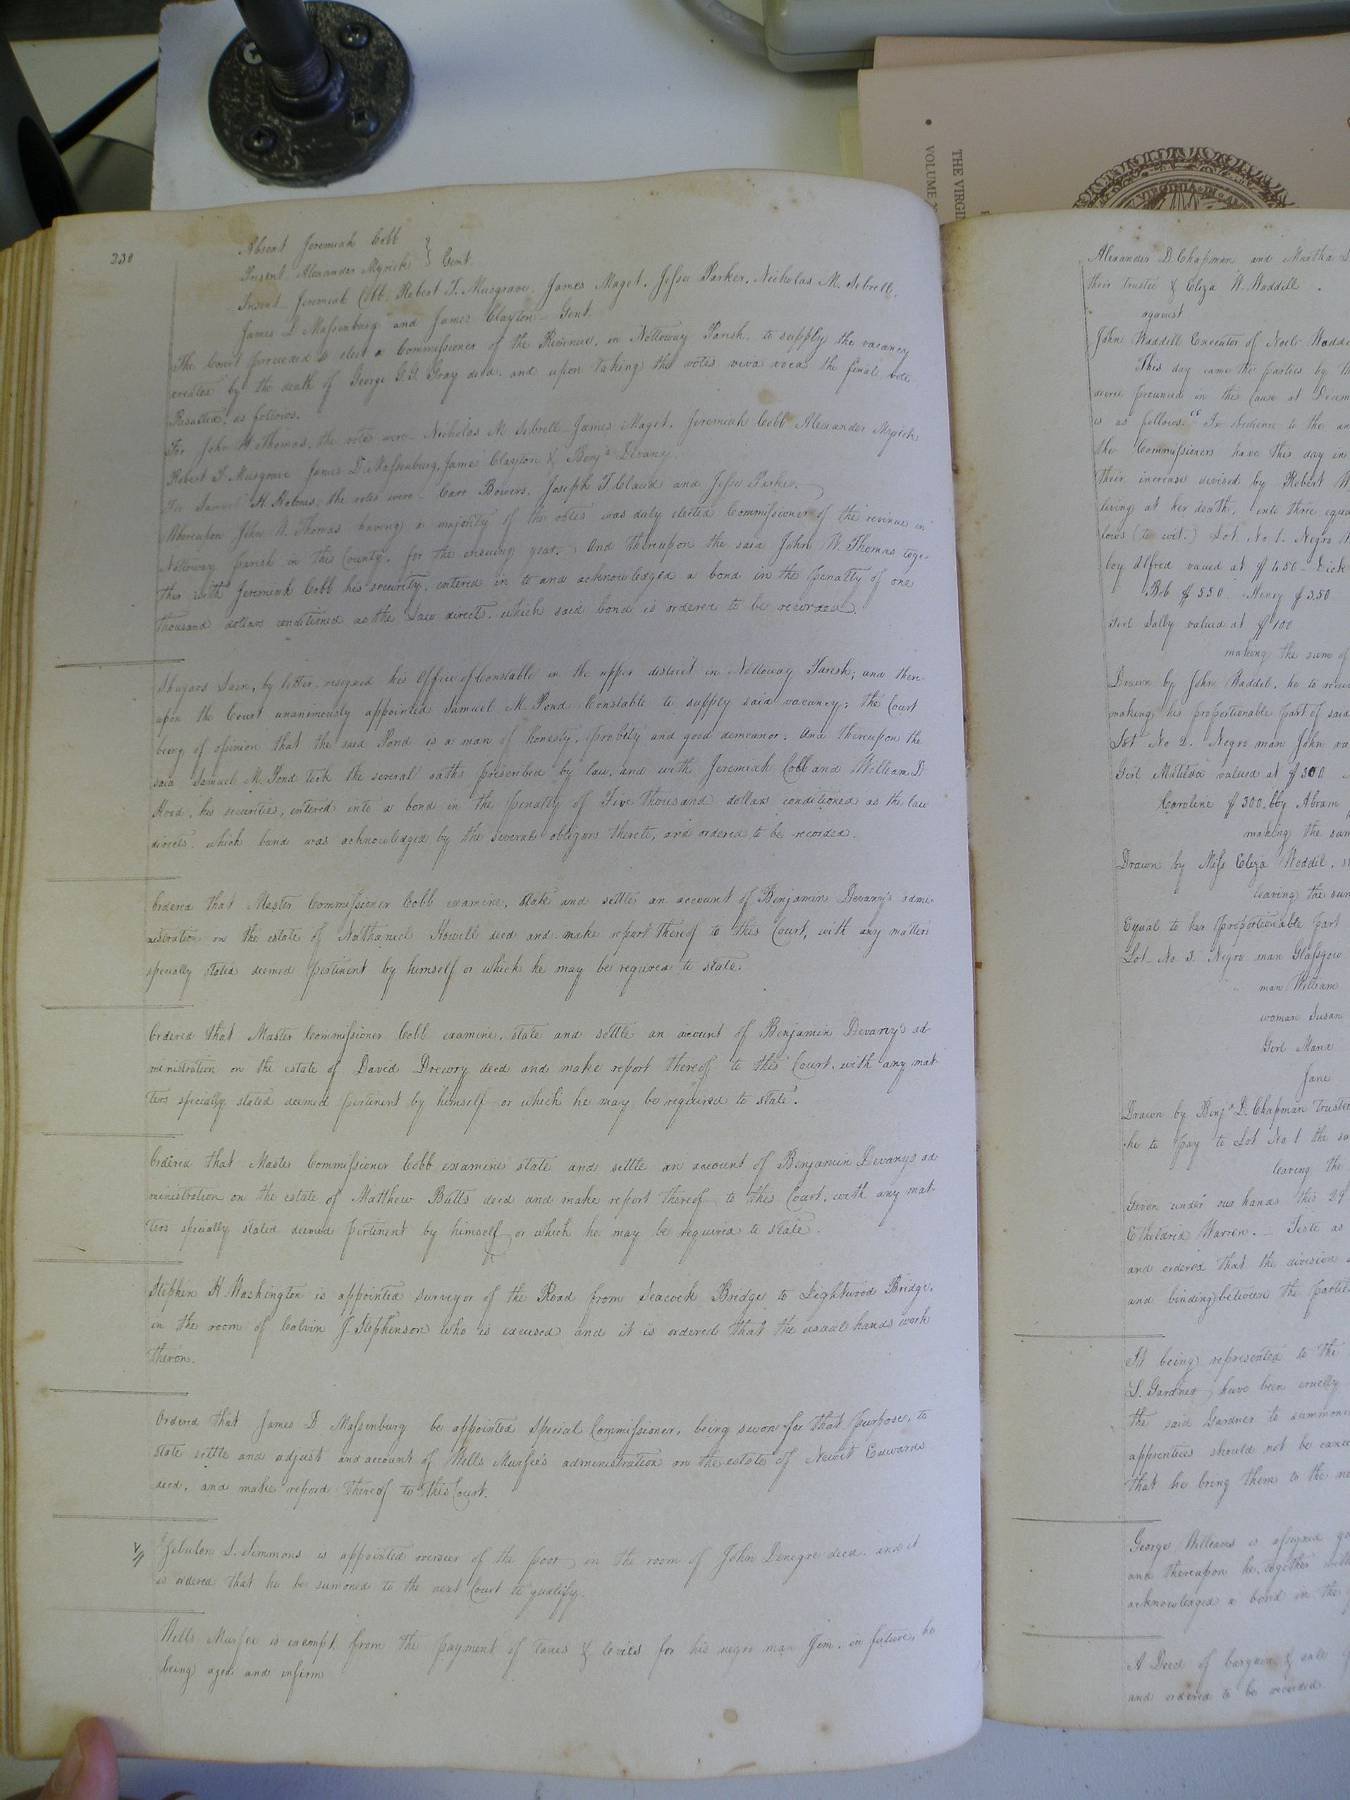 230
Absent Jeremiah Cobb
Present Alexander Myrick } Gent.
Present Jeremiah Cobb, Robert T. Musgrave, James Maget, Jesse Parker, Nicholas M. Sebrell,
James D Massenburg and James Clayton Gent.
The Court proceeded to elect a Commissioner of the Revenue, in Nottoway Parish, to supply the vacancy
created by the death of George G.G. Gray decd. and upon taking the votes viva voca the final vote
Resulted, as follows.
For John W. Thomas, the vote were Nicholas M Sebrell James Maget, Jeremiah Cobb Alexander Myrick
Robert T. Musgrave James D. Massenburg, James Clayton & Benjn Devany.
For Samuel H. Holmes, the votes were Carr Bowers, Joseph T. Claud and Jesse Parker.
Whereupon John W. Thomas having a majority of the votes was duly elected Commissioner of the revenue in
Nottoway parish in this County, for the ensuing year. And thereupon the said John W. Thomas toge-
ther with Jeremiah Cobb his security, entered in to and acknowledged a bond in the penalty of one
thousand dollars conditioned as the Law direct, which said bond is ordered to be recorded.
by letter, resigned his Office of Constable in the upper district in Nottoway Parish; and there-
upon the Court unanimously appointed Samuel M. Pond Constable to supply said vacancy; the Court
being of opinion that the said Pond is a man of honesty, probity and good demeanor; And thereupon the
said Samuel M. Pond took the several oaths prescribed by law, and with Jeremiah Cobb and William D
Hood, his securities, entered into a bond in the penalty of Five thousand dollars conditioned as the law
directs, which bond was acknowledged by the several obligors thereto, and ordered to be recorded.
Ordered that Master Commissioner Cobb examine, state and settle an account of Benjamin Devany's admi-
nistration on the estate of Nathaniel Howell decd and make report thereof to this Court, with any matters
specially stated deemed pertinent by himself or which he may be required to state.
Ordered that Master Commissioner Cobb examine, state and settle an account of Benjamin Devany's ad-
ministration on the estate of David Drewry decd and make report thereof to this Court, with any mat-
ters specially stated deemed pertinent by himself or which he may be required to state.
Ordered that Master Commissioner Cobb examine state and settle an account of Benjamin Devany's ad
ministration on the estate of Matthew Butts decd and make report thereof to this Court, with any mat-
ters specially stated deemed pertinent by himself or which he may be required to state.
Stephen H Washington is appointed surveyor of the Road from Seacock Bridge to Lightwood Bridge,
in the room of Colvin J. Stephenson who is excused and it is ordered that the usual hands work
theron.
Ordered that James D Massenburg be appointed Special Commissioner, being sworn for that purpose, to
state settle and adjust and account of Wells Murfee's administration on the estate of Newit Edwards
decd, and make repord thereof to this Court.
Zebulon S. Simmons is appointed overseer of the poor in the room of John Denegre decd. and it
is ordered that he be sumoned to the next Court to qualify.
Wells Murfee is exempt from the payment of taxes & levies for his negro man Jim, in future, he
being aged and infirm
THE VIRGI
VOLUME
VIRGINIA IN
Alexander D. Chapman and Martha
their Trustee & Eliza W. Waddill
against
John Waddill Executor of
This day came the parties by
decree pronounced in the Cause at
is as follows. "In obedience to the
the Commissioners have this day in
their increase devised by Robert
living at her death, into three equa
lows (to wit.) Lot No 1. Negro
boy Alfred valued at $450
Bob $550 Henry $350
Girl Sally valued at $100
making the sum of
Drawn by John Waddil, he to
making his proportionable part of said
Lot No 2. Negro man John va
Girl Matilda valued at $300
Caroline $300. boy Abram
making the sum
Drawn by Miss Eliza Waddil,
leaving the sum
Equal to her proportionable part
Lot No 3. Negro man Glassgow
man William
woman Susan
Girl Maria
Jane
Drawn by Benjn D. Chapman Trustee
he to pay to Lot No 1 the
leaving the
Given under our hands this 29
Etheldred Warren. Teste as
and ordered that the division
and binding between the parties
It being represented to the
S. Gardner, have been cruelly
the said Gardner to summons
apprentices should not be
that he bring them to the
George Williams is assigned
and thereupon he, together with
acknowledged a bond in the
A Deed of bargain & sale
and ordered to be recorded